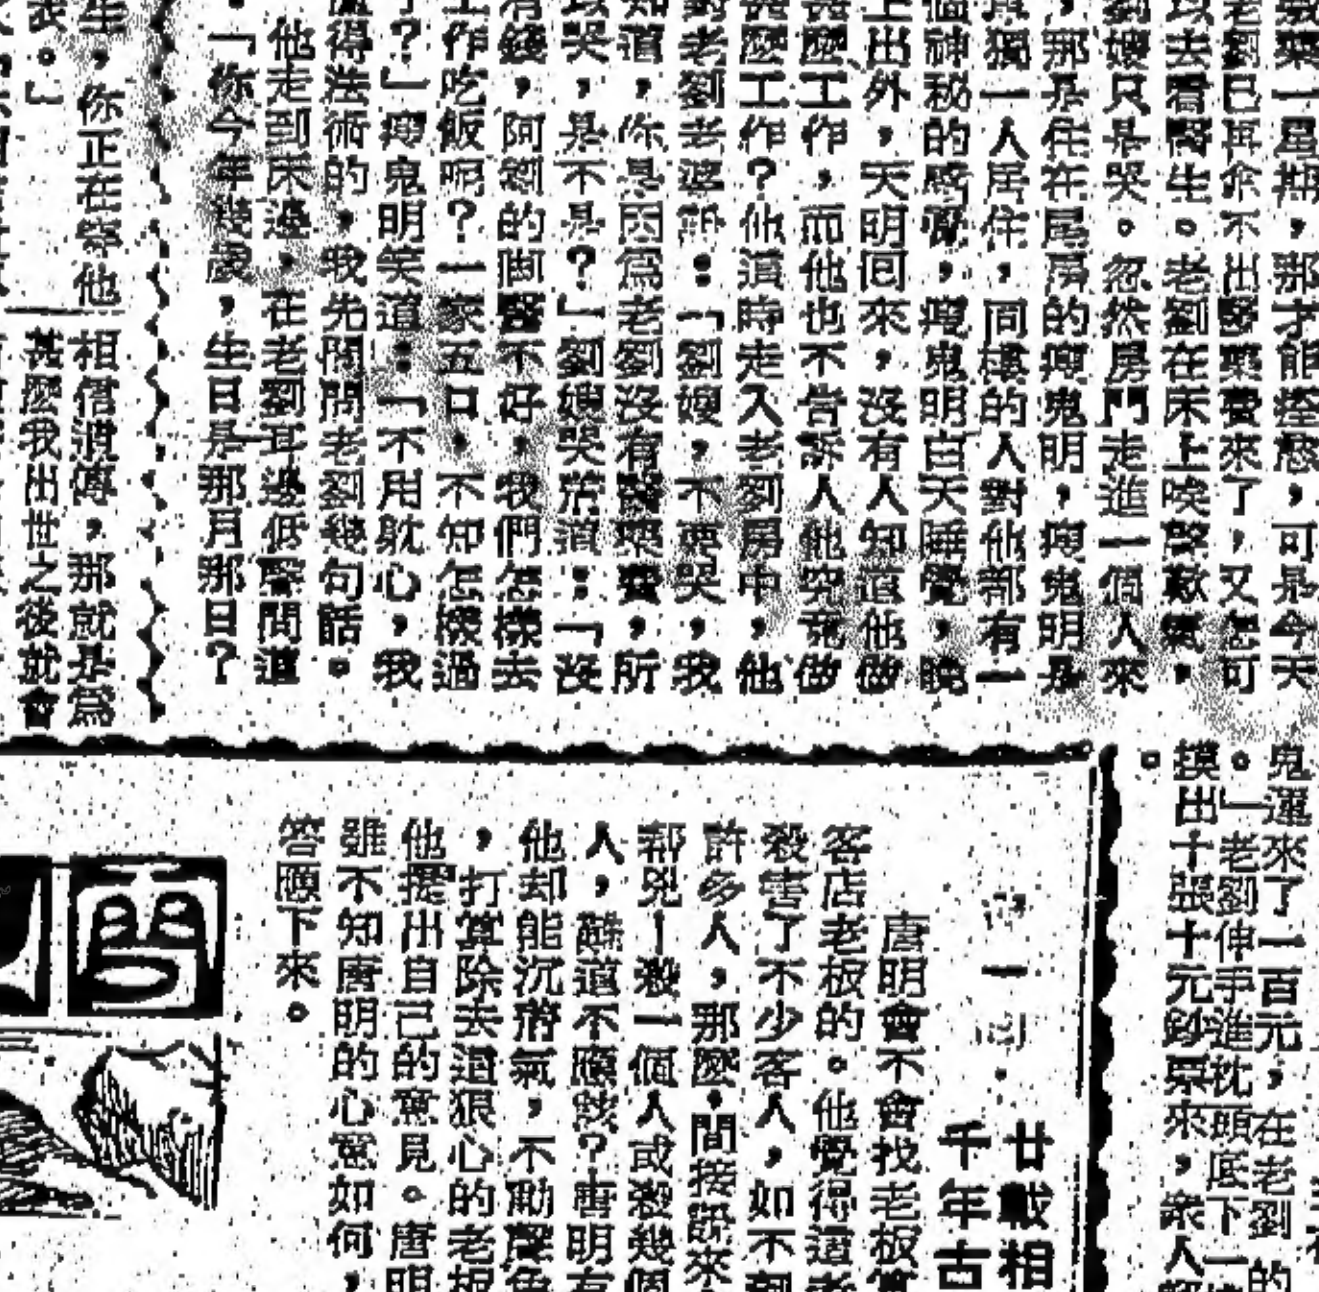 藥一星期，那才能痊愈，可是今天
老劉已再拿不出醫藥費來了，又怎可
以去看醫生。老劉在床上唉聲歎氣，
劉嫂只是哭。忽然房門走進一個人來
，那是住在尾房的瘦鬼明，瘦鬼明是
單獨一人居住，同樓的人對他都有一
個神秘的感覺，瘦鬼明白天睡覺，晚
上出外，天明囘來，沒有人知道他做
甚麽工作，而他也不告訴人他究竟做
甚麽工作？他這時走入老劉房中，他
對老劉老婆說：「劉嫂，不要哭，我
知道，你是因爲老劉沒有醫藥費，所
以哭，是不是？」劉嫂哭着道：「沒
有錢，阿劉的病醫不好，我們怎樣去
工作吃飯呢？一家五口，不知怎樣過
？」瘦鬼明笑道：「不用躭心，我
得法術的，我先問問老劉幾句話。
他走到床邊，在老劉耳邊低聲問道
「你今年幾歲，生日是那月那日？
生，你正在等他
相信遺傳，那就是爲
甚麽我出世之後就會
鬼運來了一百元，在老劉的
。」老劉伸手進枕頭底下一
摸出十張十元鈔票來，衆人
。
廿載相
千年古
唐明會不會找老板算
客店老板的。他覺得這老
殺害了不少客人，如不
許多人，那麽，間接說來
都兇－殺一個人或殺幾個
人，難道不應該？唐明有
他却能沉着氣，不動聲色
，打算除去這狠心的老板
他提出自己的意見。唐明
雖不知唐明的心意如何，
答應下來。